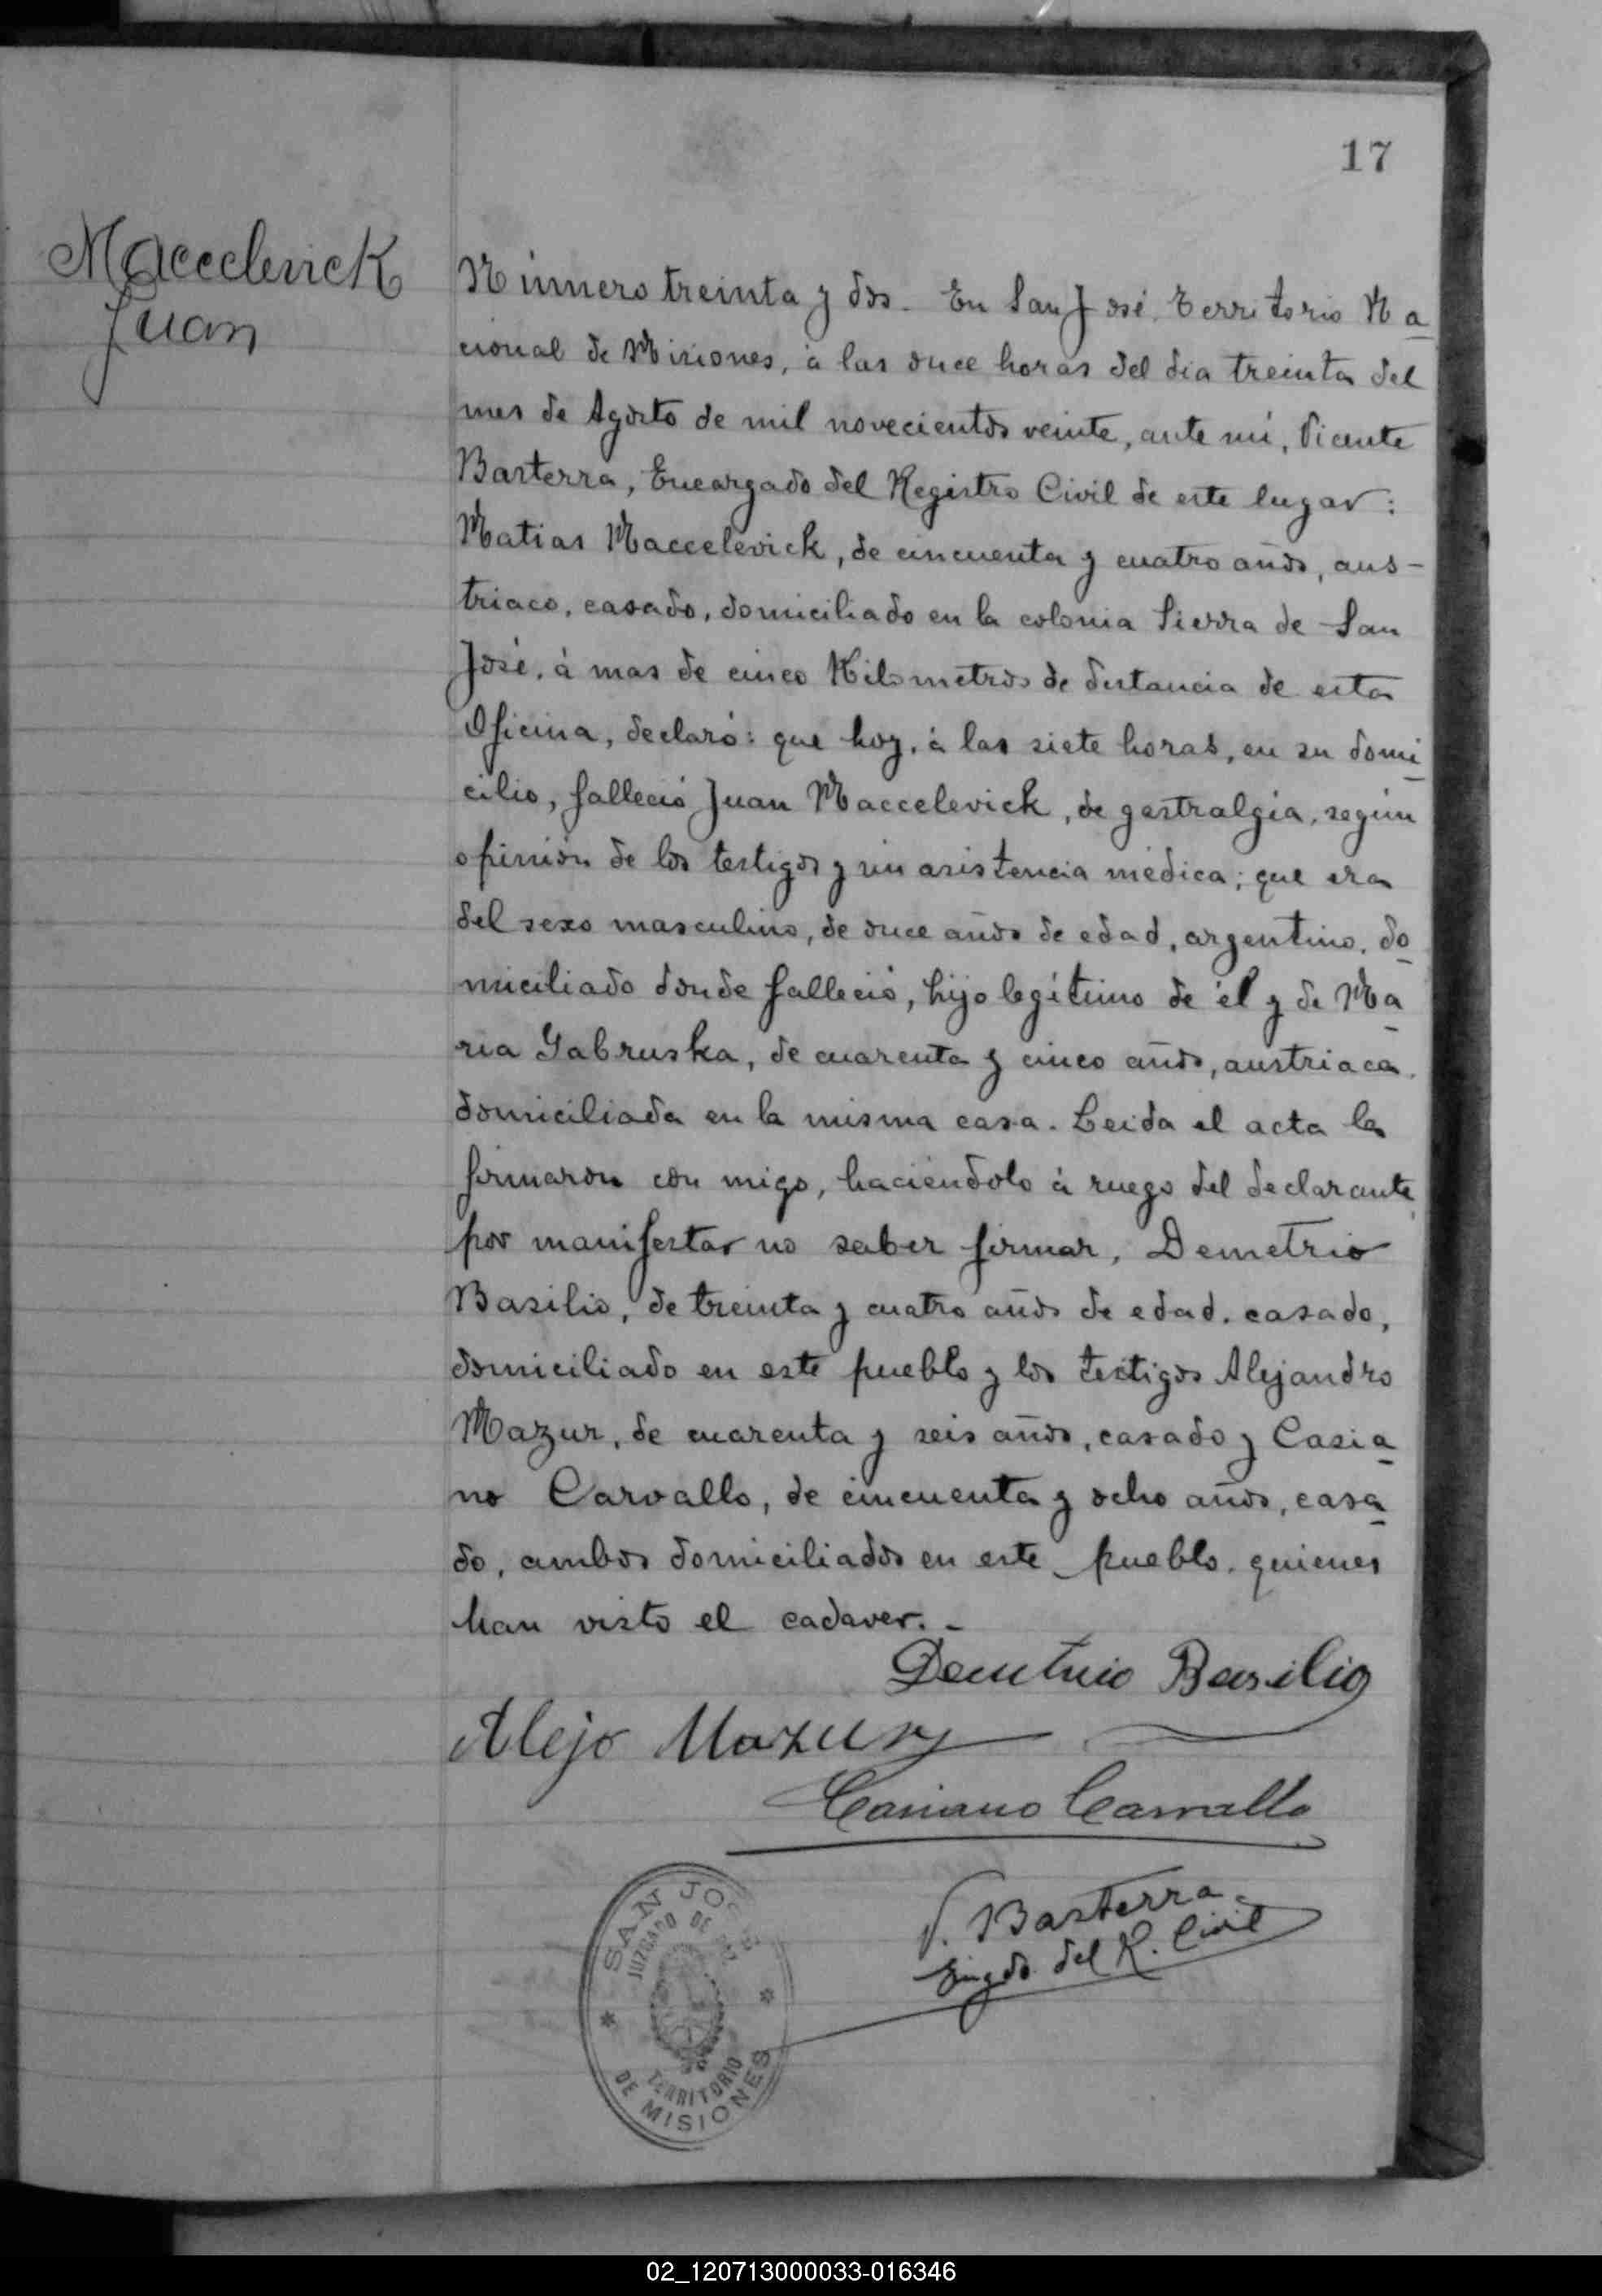 17
Maccelevick
Juan
Número treinta y dos. En San José, Territorio Na
cional de Misiones, á las once horas del dia treinta del
mes de Agosto de mil novecientos veinte, ante mí, Vicente
Basterra, Encargado del Registro Civil de este lugar:
Matias Maccelevick, de cincuenta y cuatro años, aus-
triaco, casado, domiciliado en la colonia Sierra de San
José, á mas de cinco Kilometros de distancia de esta
Oficina, declaró: que hoy, á las siete horas, en su domi
cilio, falleció Juan Maccelevick, de gastralgia, según
opinión de los testigos y sin asistencia médica; que era
del sexo masculino, de once años de edad, argentino, do
miciliado donde falleció, hijo legítimo de él y de Ma
ria Yabruska, de cuarenta y cinco años, austriaca,
domiciliada en la misma casa. Leida el acta la
firmaron con migo, haciéndolo á ruego del declarante,
por manifestar no saber firmar, Demetrio
Basilio, de treinta y cuatro años de edad, casado,
domiciliado en este pueblo y los testigos Alejandro
Mazur, de cuarenta y seis años, casado y Casia
no Carvallo, de cincuenta y ocho años, casa
do, ambos domiciliados en este pueblo, quienes
han visto el cadaver.-
Demetrio Basilio
Alejo Mazur
Casiano Carvallo
V. Basterra
Engdo. del R. Civil
SAN JOSÉ
JUZGADO DE PAZ
TERRITORIO
DE MISIONES
02_120713000033-016346